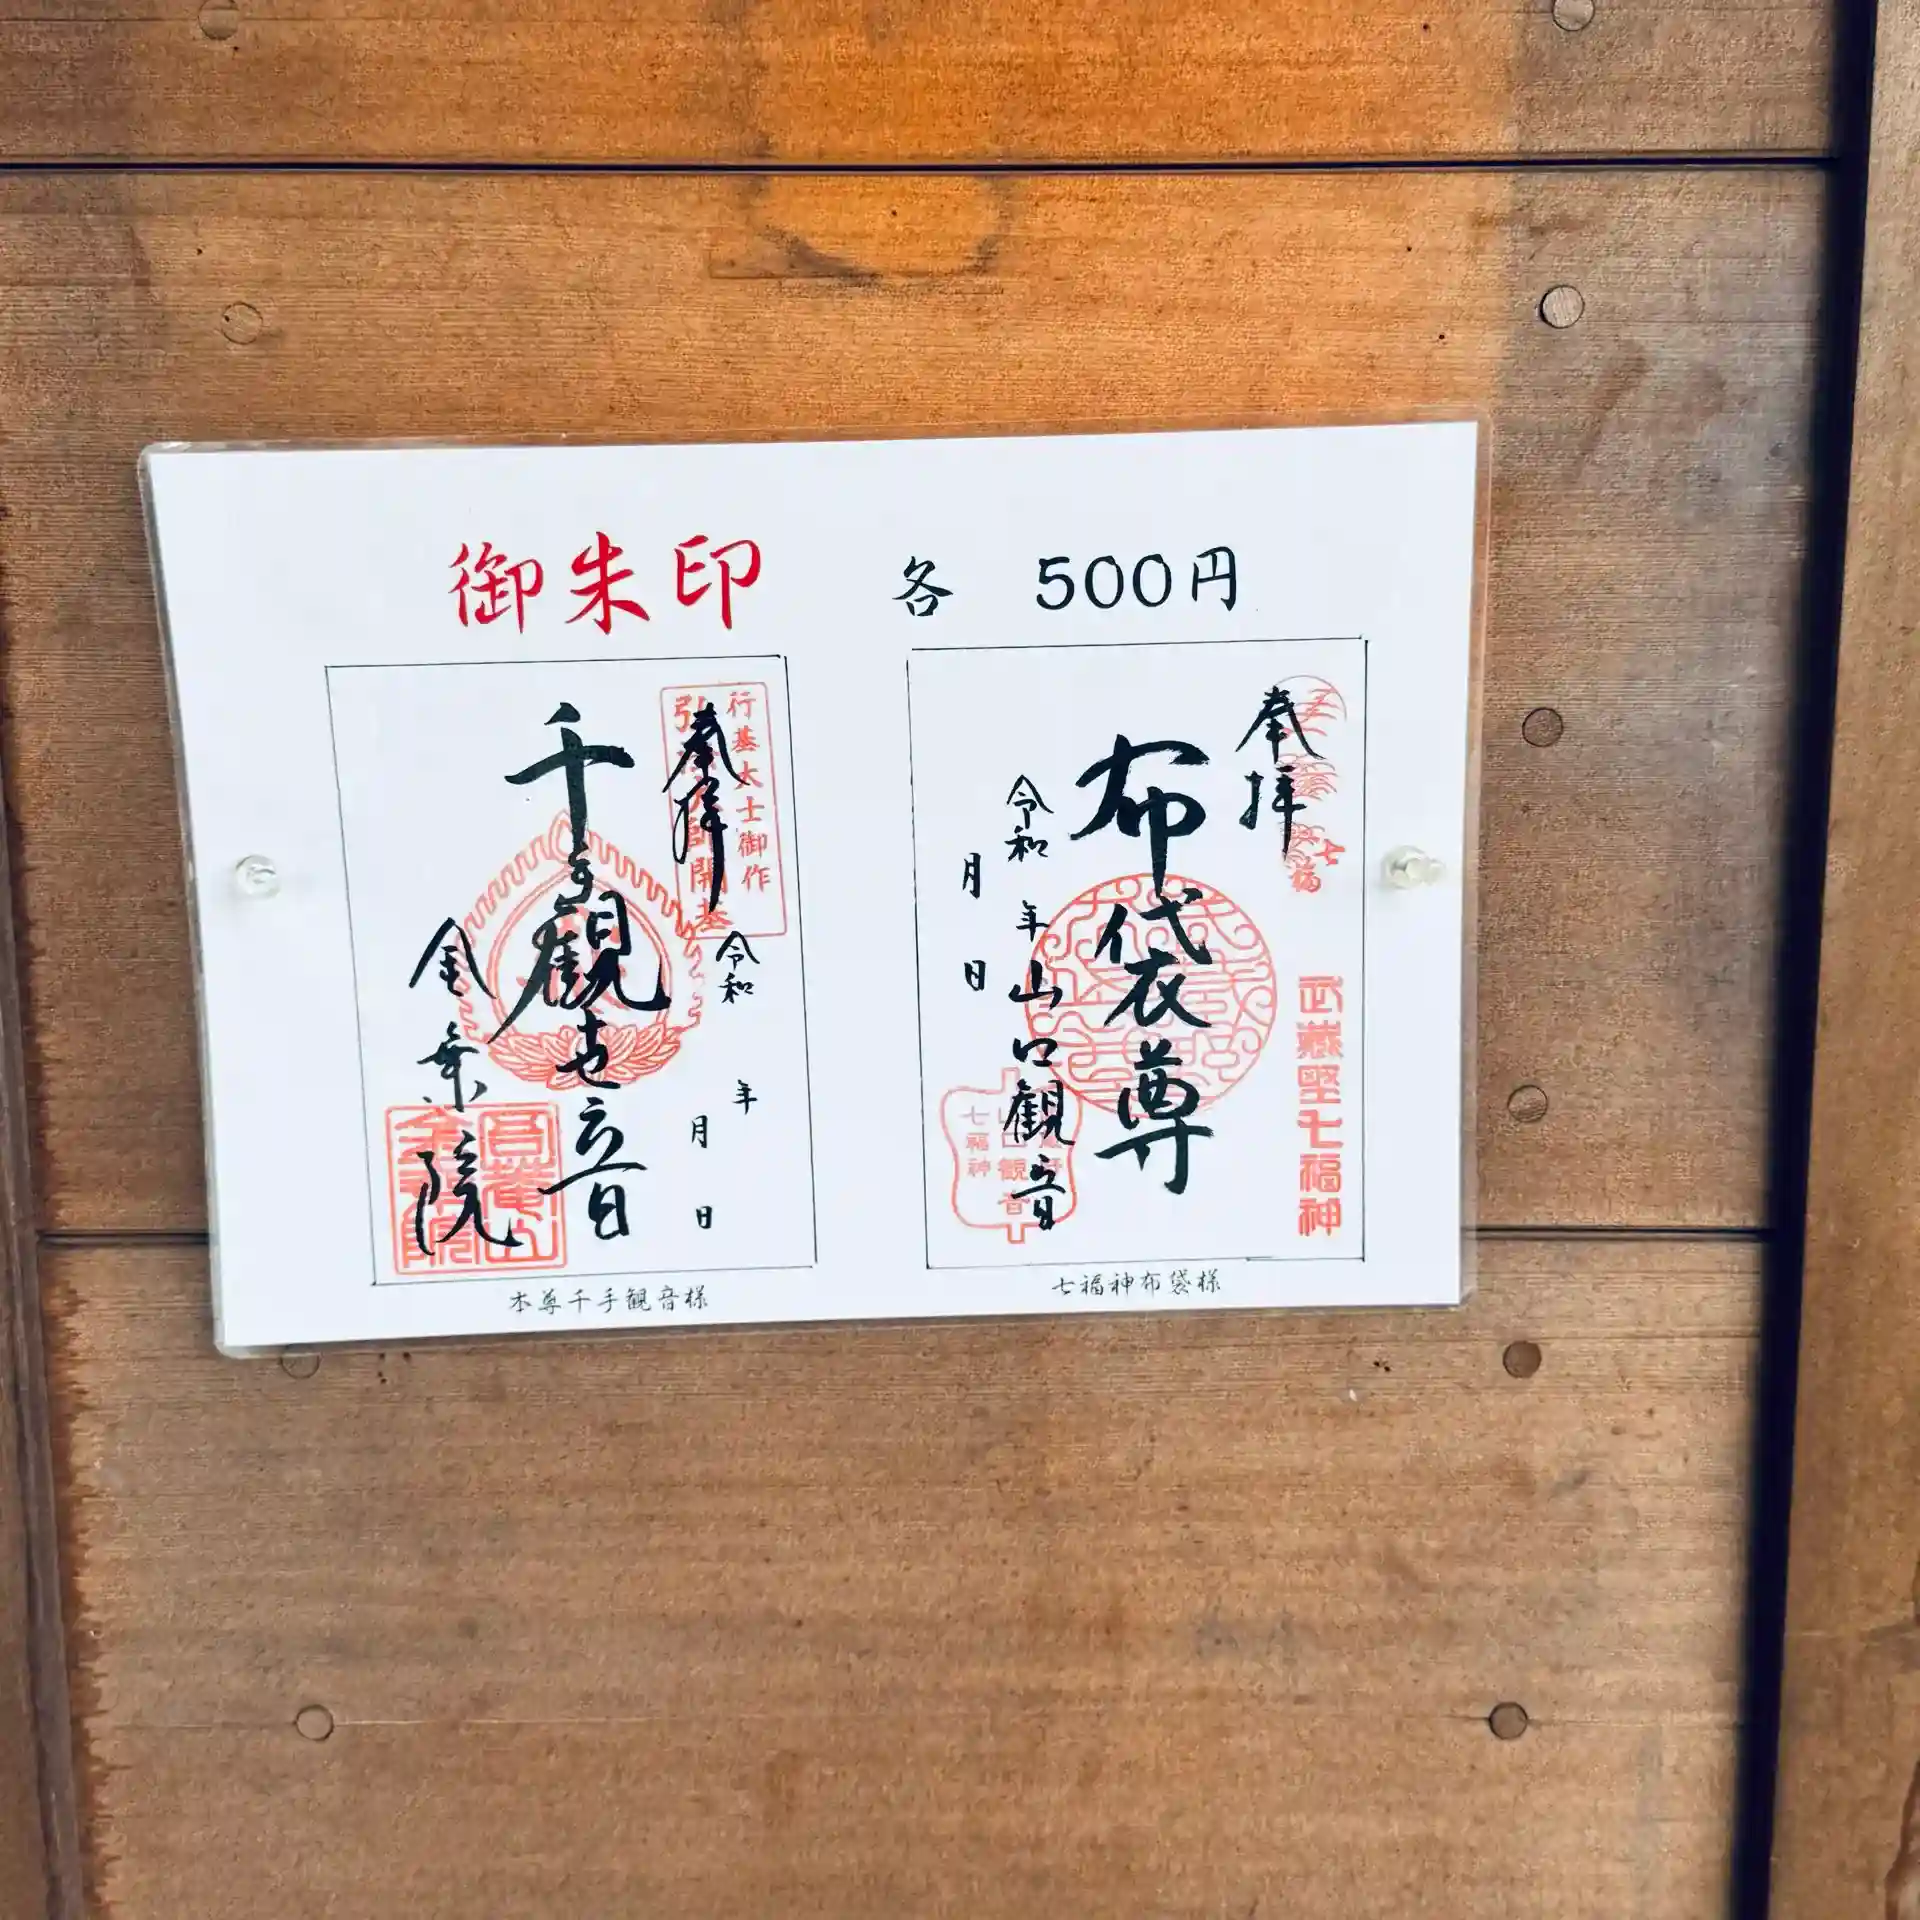 御朱印 各 500円
奉拝
行基大士御作
弘法大師開基
令和 年 月 日
千手観世音
金乗院
本尊千手観音様
奉拝
武蔵野七福神
布袋尊
令和 年 月 日
山口観音
七福神
山口観音
七福神布袋様